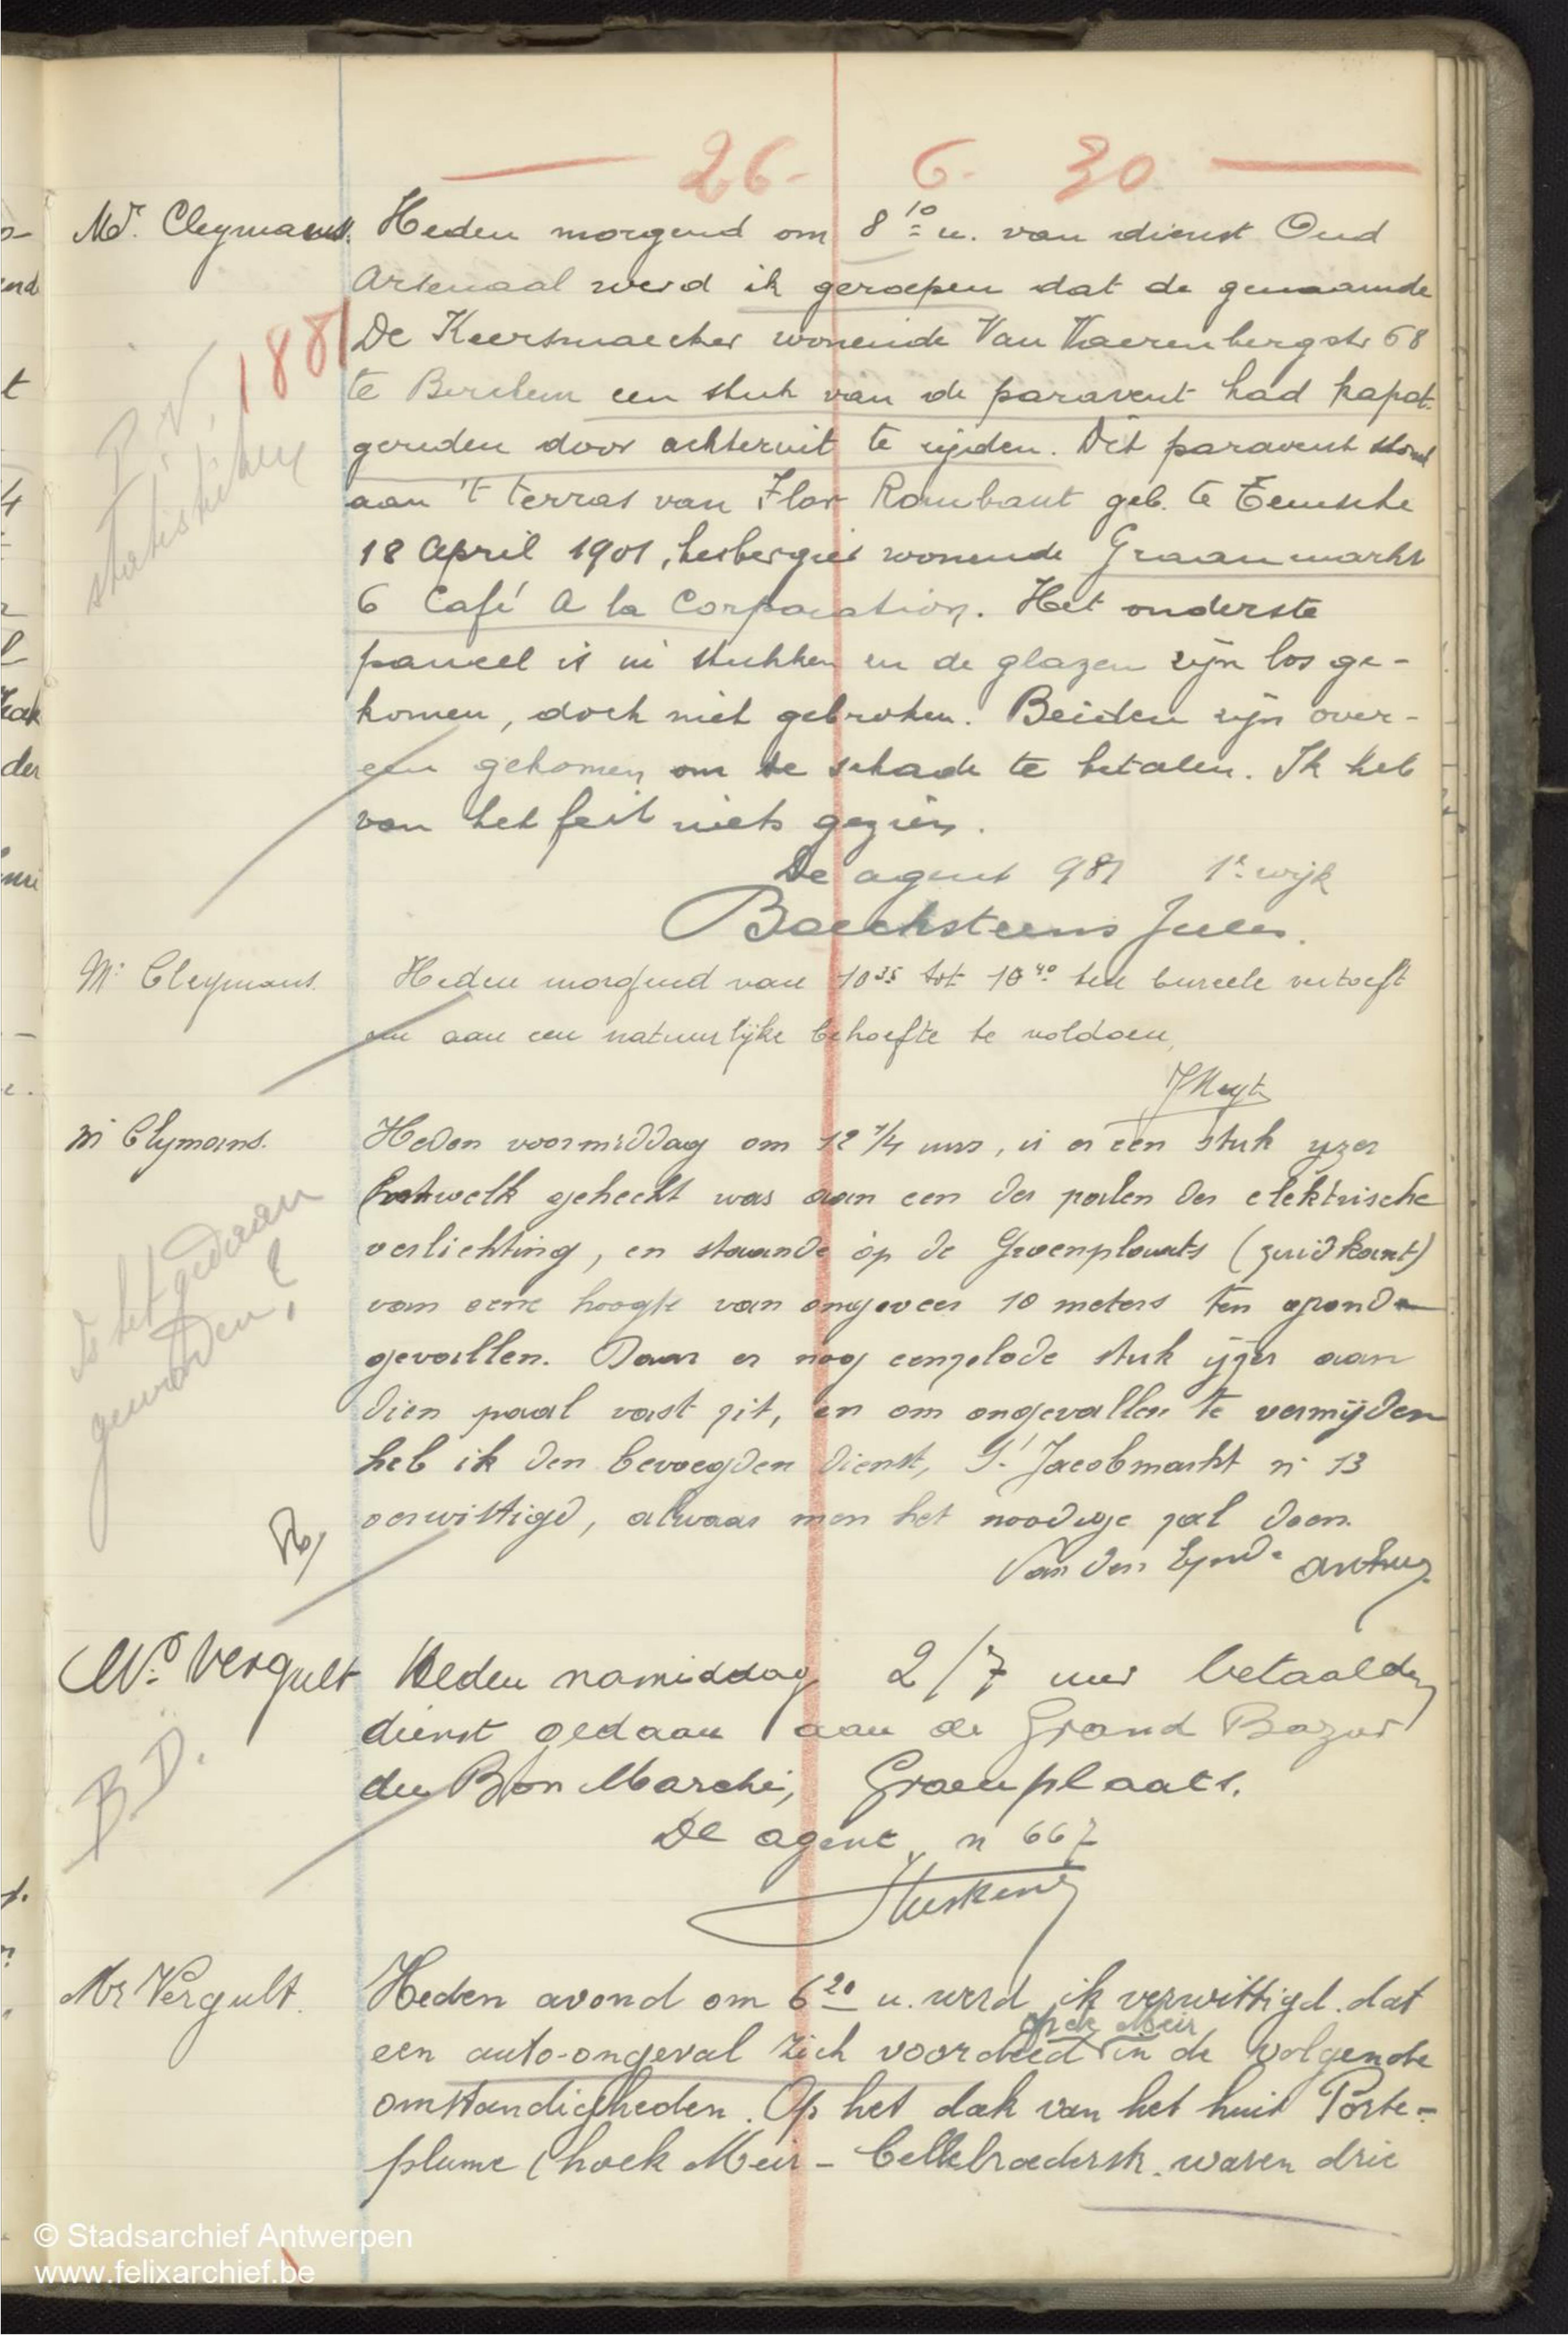 26- 6- 30
Mr. Cleymans. Heden morgend om 8 10 u. van dienst Oud
Arsenaal werd ik geroepen dat de genaamde
1881 De Keersmaecker wonende Van Vaerenbergstr 68
te Berchem een stuk van de paravent had kapot
P.V. gereden door achteruit te rijden. Dit paravent stond
statistieken aan 't terras van Flor Rombaut geb. te Temsche
18 April 1901, herbergier wonende Graanmarkt
6 Café A la Corporation. Het onderste
paneel is in stukken en de glazen zijn los ge-
komen, doch niet gebroken. Beiden zijn over-
een gekomen om de schade te betalen. Ik heb
van het feit niets gezien.
De agent 981 1e wijk
Baecksteens Jules.
Mr Cleymans. Heden morgend van 10 35 tot 10 40 ten bureele vertoeft
om aan een natuurlijke behoefte te voldoen,
Mr Clymans. Heden voormiddag om 12 1/4 uur, is er een stuk yzer
hetwelk gehecht was aan een der palen der elektrische
verlichting, en staande op de Groenplaats (zuidkant)
Is het gedaan van eene hoogte van ongeveer 10 meters ten gronde
geworden? gevallen. Daar er nog eenzelode stuk ijzer aan
dien paal vast zit, en om ongevallen te vermijden
heb ik den bevoegden dienst, St Jacobmarkt n° 13
verwittigd, alwaar men het noodige zal doen.
Van den Eynde Arthur
Mr. Vergult Heden namiddag 2/7 uur betaalden
dienst gedaan aan de Grand Bazar
B.D. du Bon Marché, Groenplaats.
De agent n 667
Mr Vergult. Heden avond om 6 20 u. werd ik verwittigd dat
op de Meir
een auto-ongeval zich voordeed in de volgende
omstandigheden. Op het dak van het huis Porte-
plume (hoek Meir - Cellebroederstr. waren drie
© Stadsarchief Antwerpen
www.felixarchief.be